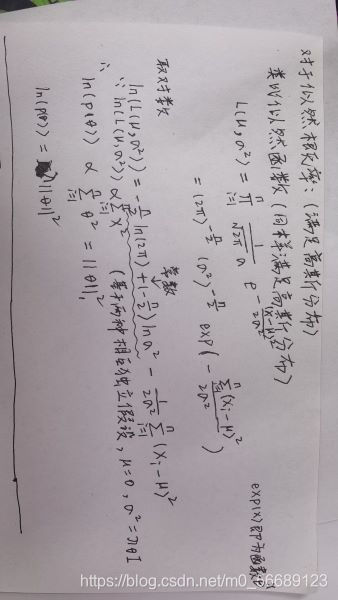 对于似然相反率:(满足高斯分布)
类似似然函数(同样满足高斯分布)
L(μ,σ²) = ∏ᵢ₌₁ⁿ 1/(√2π σ) e^(-(xᵢ-μ)²/2σ²)
= (2π)^(-n/2) (σ²)^(-n/2) exp(- Σᵢ₌₁ⁿ(xᵢ-μ)²/2σ²)
exp(x)即为函数
取对数
常数
ln(L(μ,σ²)) = -n/2 ln(2π) + (-n/2) ln σ² - 1/2σ² Σᵢ₌₁ⁿ (xᵢ-μ)²
∵ ln(L(μ,σ²)) ∝ Σᵢ₌₁ⁿ x² (基于两种相互独立假设, μ=0, σ²=πθI
∴ ln(p(θ)) ∝ Σᵢ₌₁ⁿ θ² = ||θ||²
ln(p(θ)) = ||θ||²
https://blog.csdn.net/m0_56689123